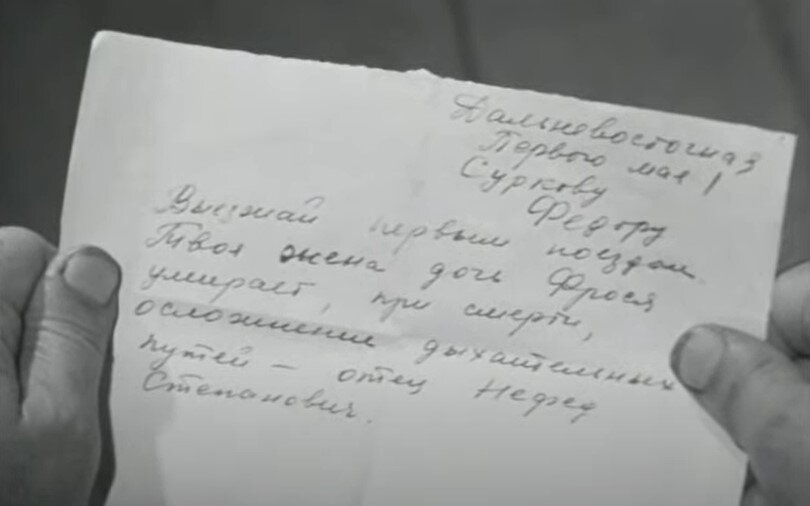 Дальневосточная 3
Первого мая 1
Суркову
Федору
Выезжай первым поездом
Твоя жена дочь Фрося
умирает, при смерти,
осложнение дыхательных
путей – отец Нефед
Степанович.